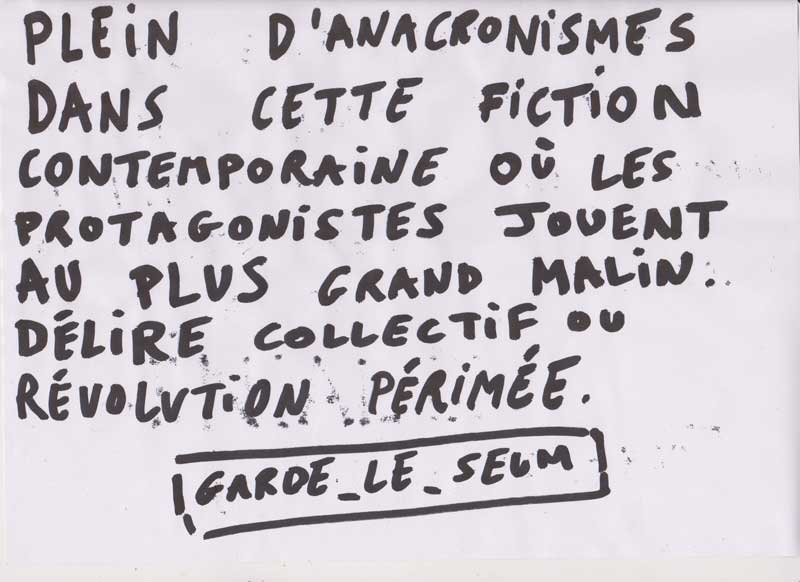 PLEiN D'ANACRONiSMES
DANS CETTE FiCTiON
CONTEMPORAiNE OÙ LES
PROTAGONiSTES JOUENT
AU PLUS GRAND MALiN.
DÉLiRE COLLECTiF OU
RÉVOLUTiON PÉRiMÉE.
GARDE_LE_SEUM